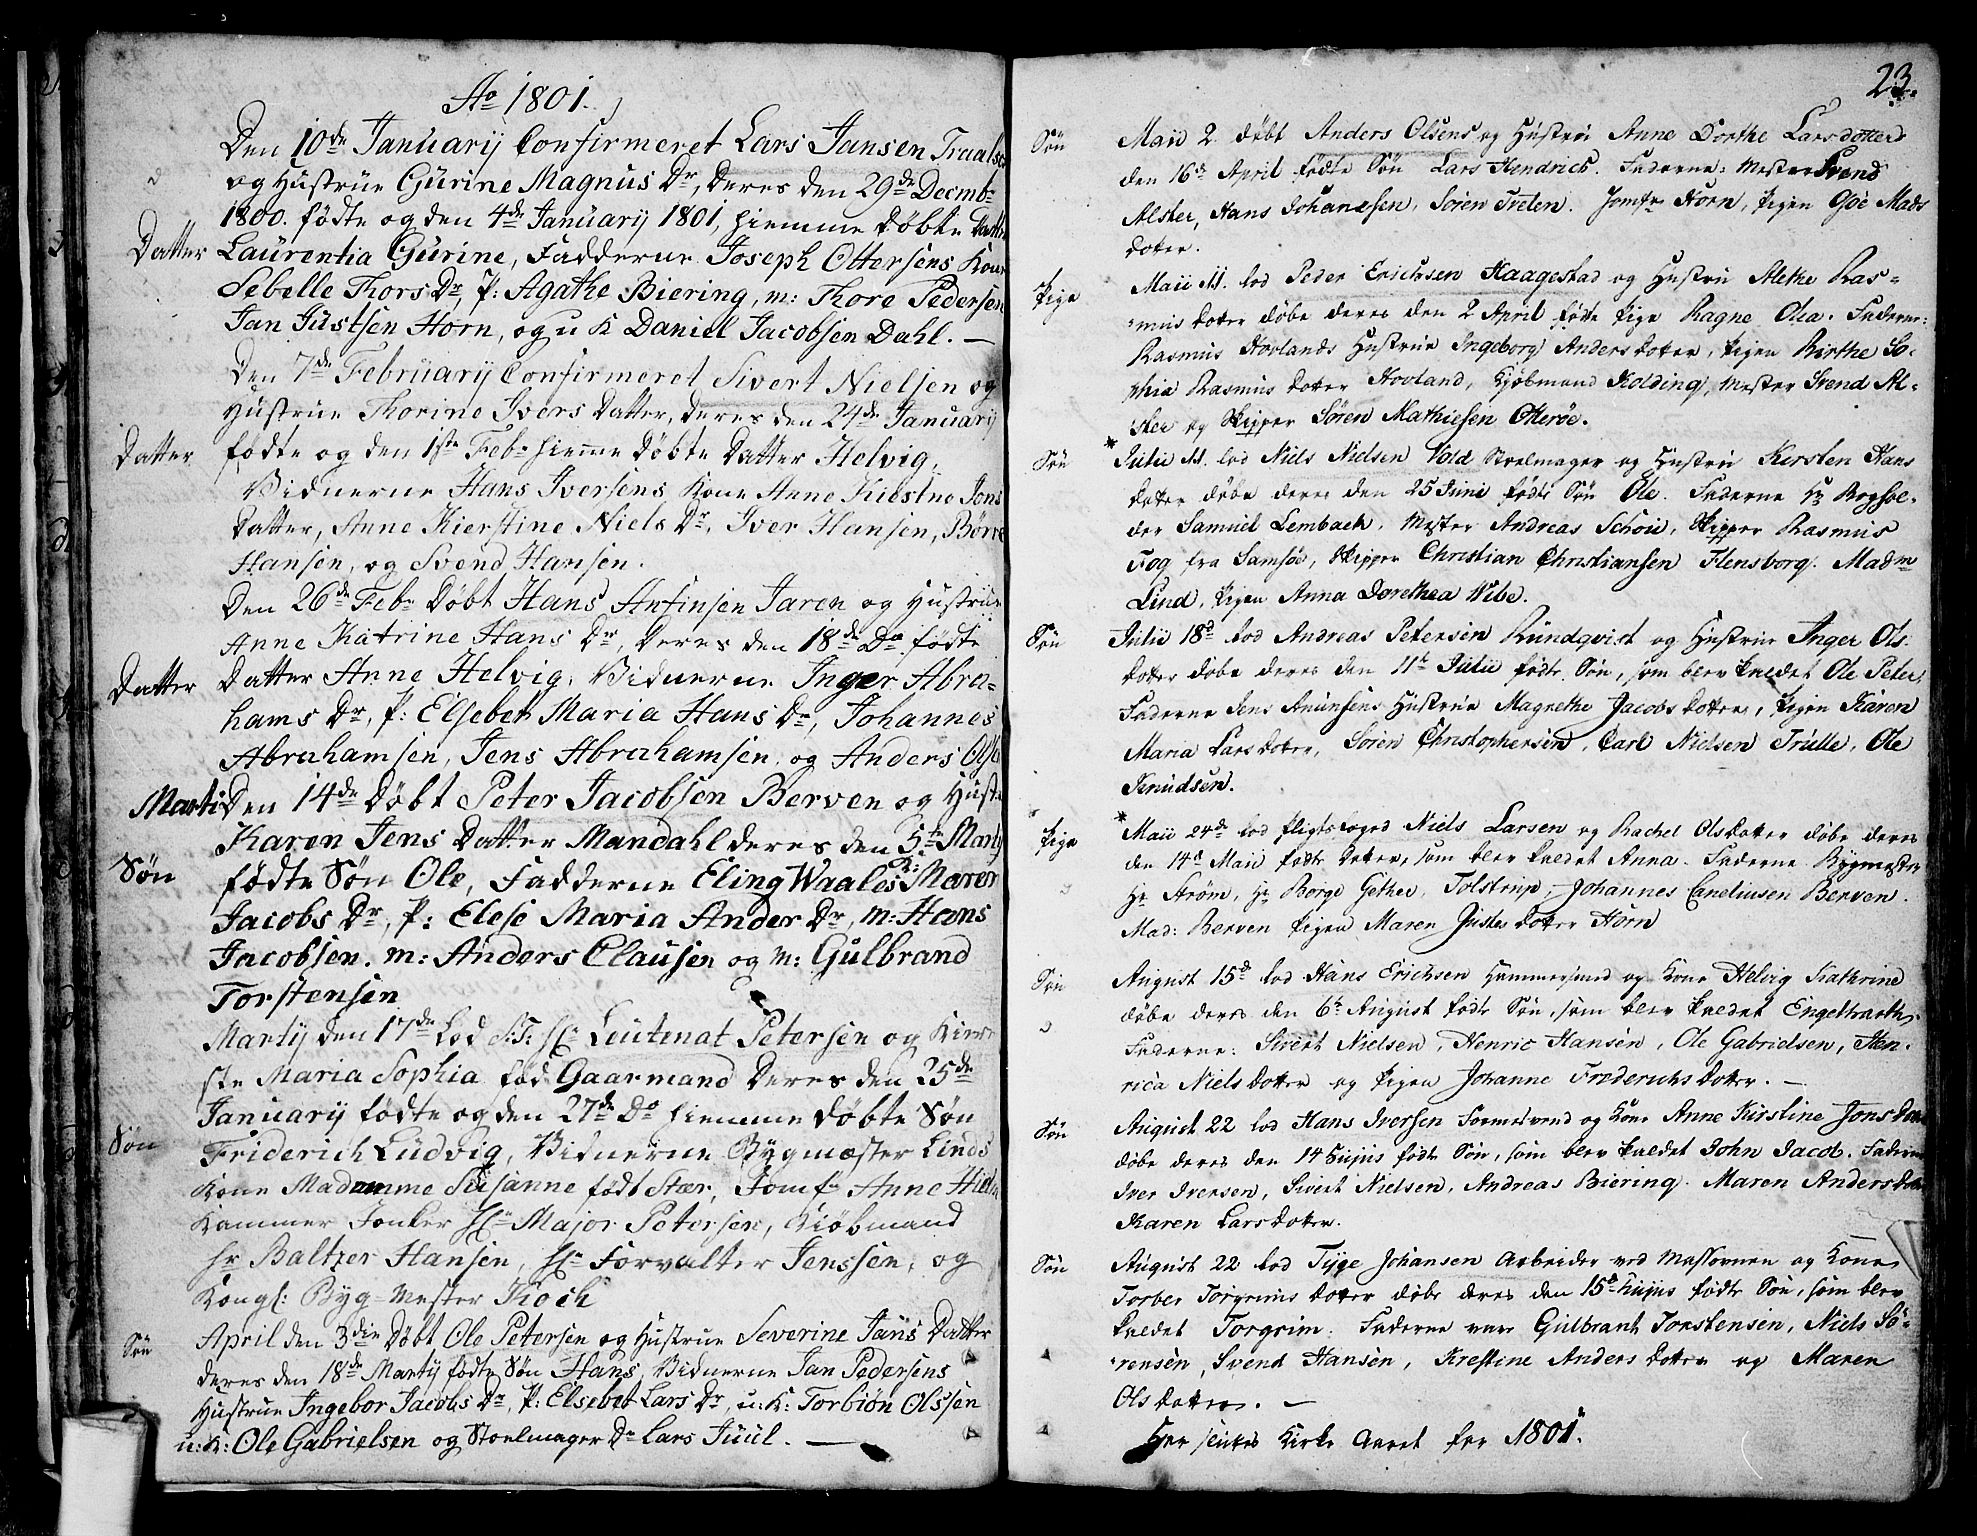 Ao 1801.
Den 10de Januarij Confirmeret Lars Jansen
og Hustrue Gurine Magnus Dr, deres den 29de Decemb:
1800. fødte og den 4de Januarij 1801, hiemme døbte
Datter Laurentia Gurine, Fadderne Joseph Ottersens Kone
Sebelle Thors Dr, P: Agathe Biering, m: Thore Pedersen
Jan Justsen Horn, og u K Daniel Jacobsen Dahl. —
Den 7de Februarij Confirmeret Sivert Nielsen og
Hustrue Thorine Ivers Datter, deres den 24de Januarij
Datter fødte og den 1ste Feb: hiemme døbte Datter Helvig,
Vidnerne Hans Iversens Kone Anne Kiestne Jons
Datter, Anne Kierstine Niels Dr, Iver Hansen, Børre
Hansen, og Svend Hansen.
Den 26de Feb: døbt Hans Anfinsen Jaren og Hustrue
Anne Katrine Hans Dr, deres den 18de Do fødte
Datter Datter Anne Helvig, Vidnerne Inger Abra-
hams Dr, P: Elsebet Maria Hans Dr, Johannes
Abrahamsen, Jens Abrahamsen, og Anders
Marti Den 14de døbt Peter Jacobsen Berven og
Karen Jens Datter Mandahl deres den 5te Martij
Søn fødte Søn Ole, Fadderne Eling Waales K: Maren
Jacobs Dr, P: Elese Maria Ander Dr, m: Hans
Jacobsen. m: Anders Clausen og m: Gulbrand
Torstensen
Martij den 17de Lod S:T: Hr Leutenat Petersen og
ste Maria Sophia fød Gaarmand deres den 25de
Januarij fødte og den 27de Do hiemme døbte Søn
Søn Friderich Ludvig, Vidnerne Bygmester Linds
Kone Madamme Susanne født Stær, Jomf: Anne
Kammer Jonker Hr Major Petersen, Kiøbmand
Hr Baltzer Hansen, Hr Forvalter Jenssen, og
Kongl: Byg-Mester Koch
April den 3die døbt Ole Petersen og Hustrue Severine Jans Datter
Søn deres den 18de Martij fødte Søn Hans, Vidnerne Jan Pedersens
Hustrue Ingebor Jacobs Dr, P: Elsebet Lars Dr, u: K: Torbiøn Olssen
u: K: Ole Gabrielsen og Stoelmager Dr Lars Juul. —
23.
Søn Maii 2. døbt Anders Olsens og Hustrue Anne Dorthe Larsdotter
den 16de April fødte Søn Lars Hendrich. Faderne: Mester Svend
Alster, Hans Johanesen, Søren Tveten. Jomfr Horn, Pigen Gøe Mads
dotter.
Pige Maii 11. lod Peder Erichsen Haagestad og Hustru Alethe Ras-
mus dotter døbe deres den 2 April fødte Pige Ragne Olea. Faderne:
Rasmus Hovlands Hustrue Ingeborg Anders dotter, Pigen Birthe So-
phia Rasmus dotter Hovland, Kjøbmand Kolding, Mester Svend Al-
ster og Skipper Søren Mathiesen Otterøe.
* Søn Julii 11. lod Niels Nielsen Vold Stoelmager og Hustru Kersten Hans
dotter døbe deres den 25 Juni fødte Søn Ole. Faderne Hr Boghol-
der Samuel Lembach, Mester Andreas Schöie, Skipper Rasmus
Fog fra Samsöe, Skipper Christian Christiansen Flensborg. Madm
Lind, Pigen Anna Dorethea Wibe.
Søn Julii 18de lod Andreas Petersen Rundqvist og Hustrue Inger Ols
dotter døbe deres den 11te Julii fødte Søn, som blev kaldet Ole Peter,
Faderne Jens Anunsens Hustrue Magnethe Jacobs dotter, Pigen Karen
Maria Lars dotter, Søren Christophersen, Carl Nielsen Trulle, Ole
Knudsen.
* Pige Maii 24de lod Pligtsfoged Niels Larsen og Rachel Olsdotter døbe deres
den 14de Maii fødte dotter, som blev kaldet Anna. Faderne Bygmester
Hr Strøm, Hr Borge Gether, Tolstrup, Johannes Corneliusen Berven.
Mad: Berven Pigen Maren Justes dotter Horn
Søn August 15de lod Hans Erichsen Hammersmed og Kone Helvig Kathrine
døbe deres den 6te August fødte Søn, som blev kaldet Engelbrecth,
Faderne: Sivert Nielsen, Henric Hansen, Ole Gabrielsen, Hen-
rica Niels dotter og Pigen Johanne Frederichs dotter. —
Søn August 22 lod Hans Iversen Formersvend og Kone Anne Kirstine Jons
døbe deres den 14 Hujus fødte Søn, som blev kaldet John Jacob. Faderne
Iver Iversen, Sivert Nielsen, Andreas Biering. Maren Anders dotter
Karen Lars dotter.
Søn August 22 lod Tyge Johansen Arbeider ved Masovnen og Kone
Torber Torgrims dotter døbe deres den 15de Hujus fødte Søn, som blev
kaldet Torgrim. Faderne var Gulbrant Torstensen, Niels Sö-
rensen, Svend Hansen, Krestine Anders dotter og Maren
Ols dotter. —
Her sluttes Kirke Aaret for 1801.